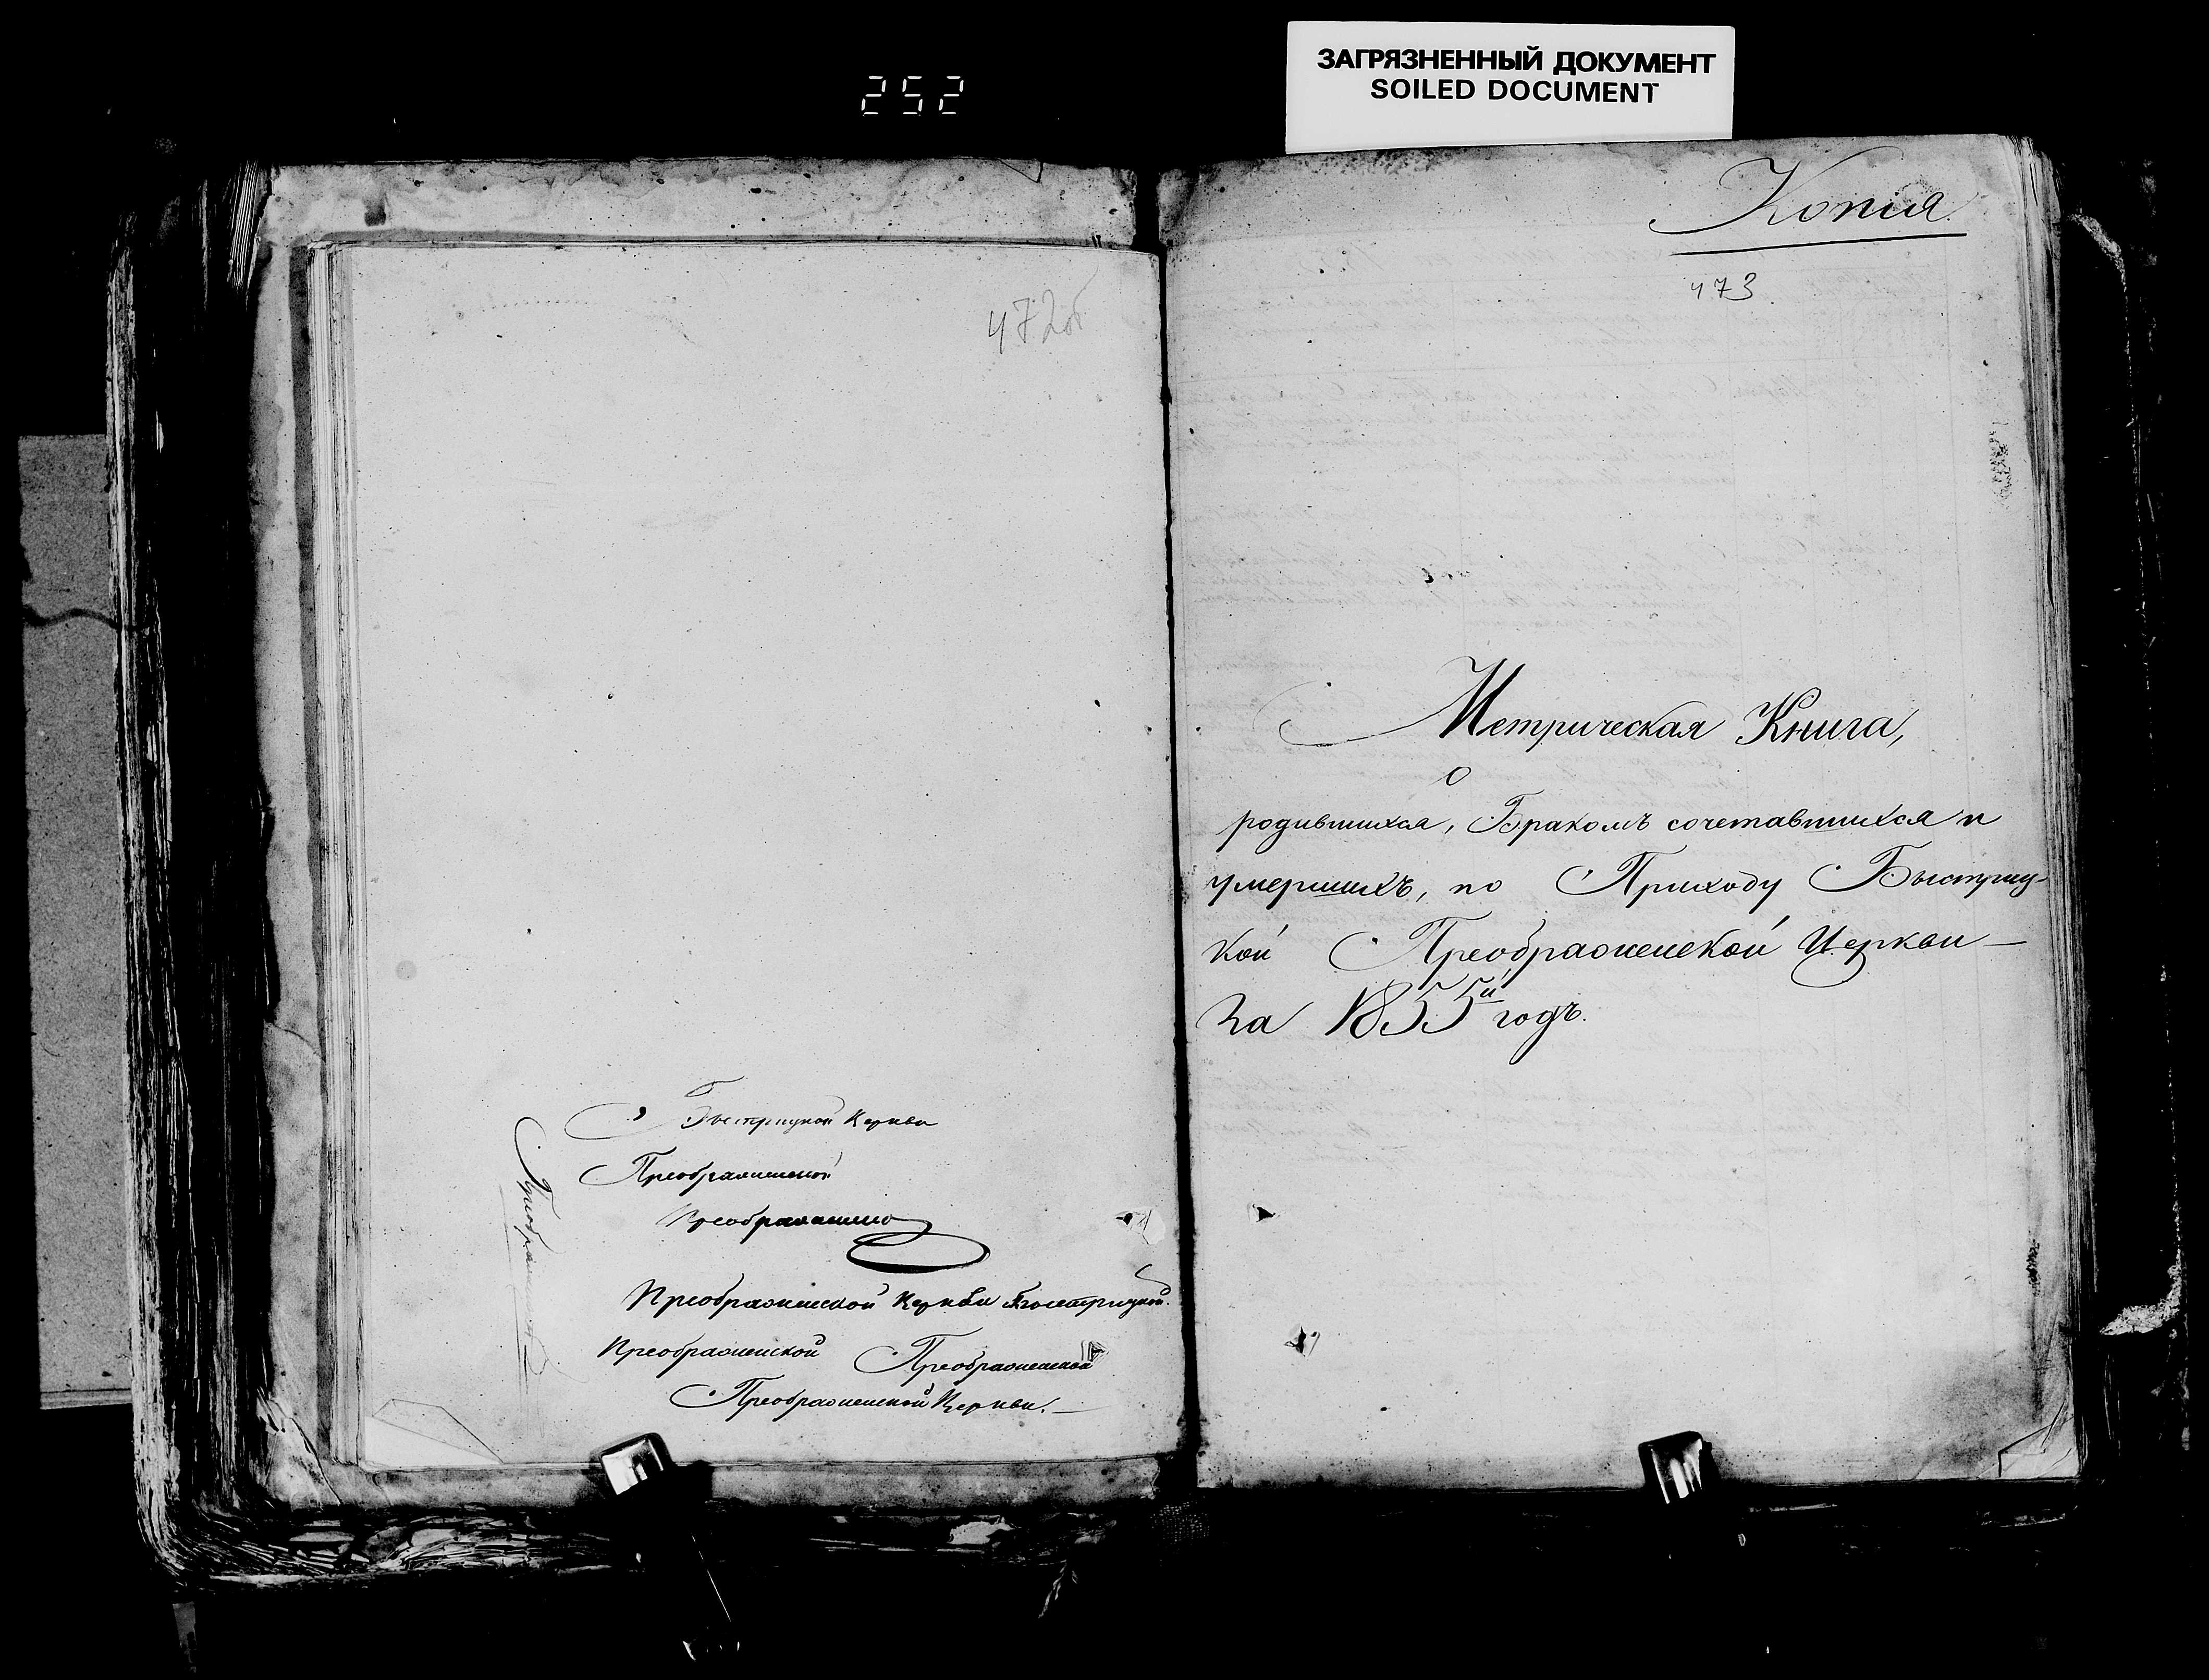 252
ЗАГРЯЗНЕННЫЙ ДОКУМЕНТ
SOILED DOCUMENT
472об
Быстрицкой Церкви
Преображенской
Преображенско
Преображенской Церкви Быстрицкой.
Преображенской Преображенской
Преображенской Церкви.
Копия
473
Метрическая Книга,
о
родившихся, Бракомъ сочетавшихся и
умершихъ, по Приходу Быстриц-
кой Преображенской Церкви
за 1855й годъ.